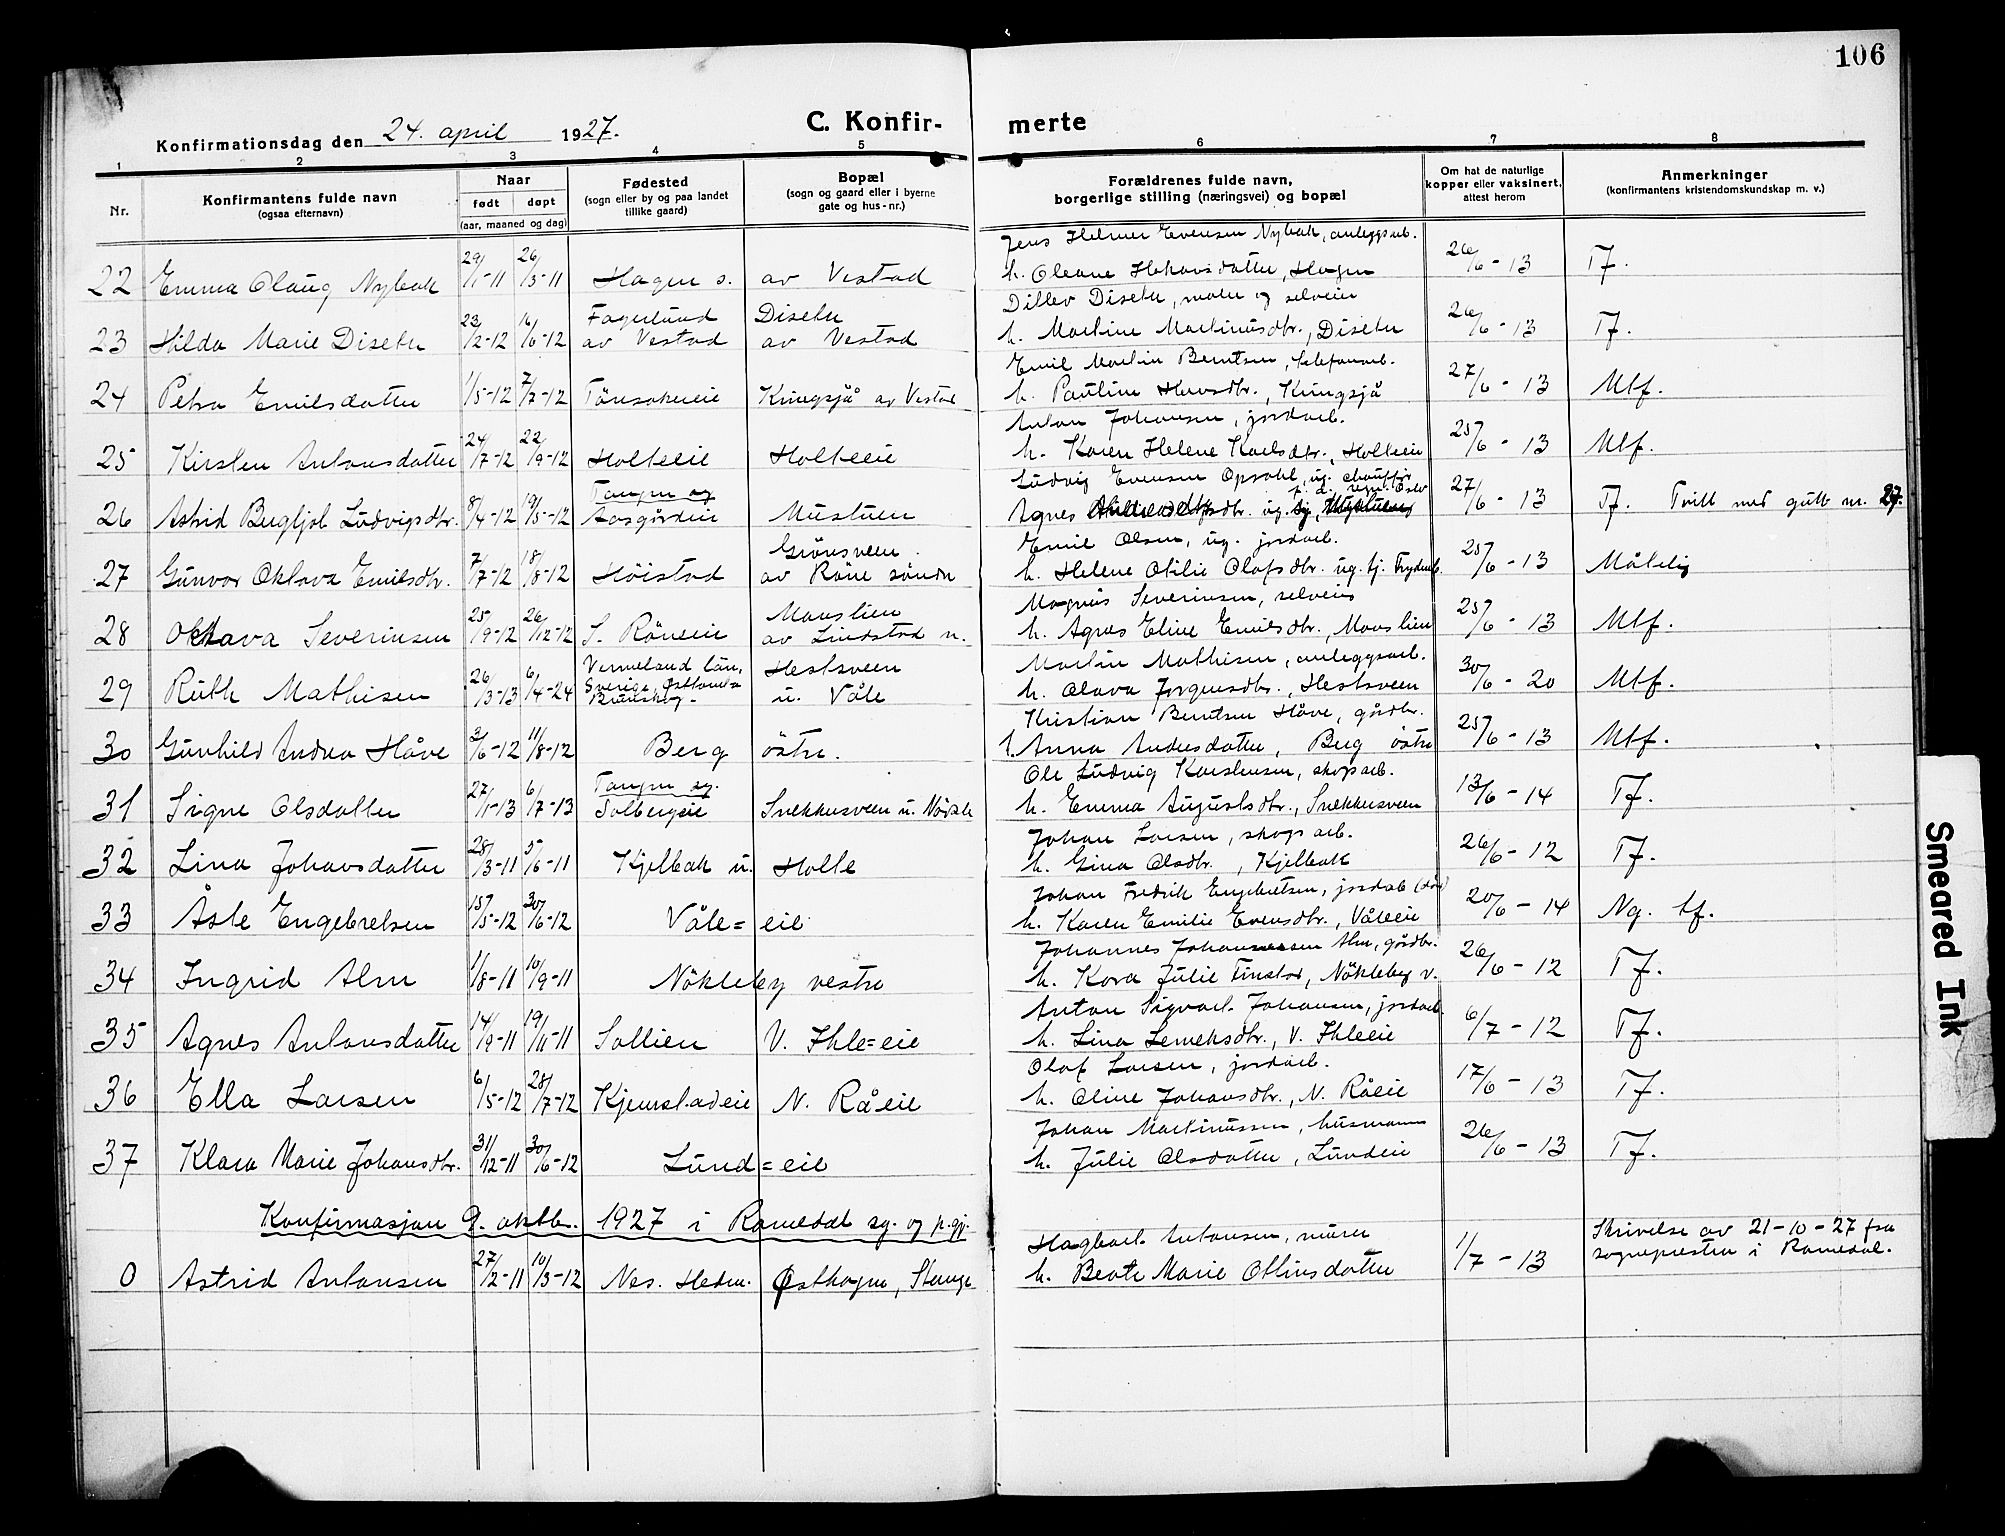 106
Konfirmationsdag den 24. april 1927.
C. Konfirmerte
1 2 3 4 5 6 7 8
Nr.
Konfirmantens fulde navn
(ogsaa efternavn)
Naar
født døpt
(aar, maaned og dag)
Fødested
(sogn eller by og paa landet
tillike gaard)
Bopæl
(sogn og gaard eller i byerne
gate og hus-nr.)
Forældrenes fulde navn,
borgerlige stilling (næringsvei) og bopæl
Om hat de naturlige
kopper eller vaksinert,
attest herom
Anmerkninger
(konfirmantens kristendomskundskap m. v.)
Jens Helmer Evensen Nybak, anleggsarb.
22 Emma Olaug Nybak 29/1-11 26/3-11 Hagen s. av Vestad h. Oleane Håkonsdatter, Hagen 26/6-13 Tf.
Fagerlund Diseter Ditlev Diseter, maler og selveier
23 Hilda Marie Diseter 23/2-12 16/6-12 av Vestad av Vestad h. Martine Martinusdtr., Diseter 26/6-13 Tf.
Emil Martin Berntsen, telefonarb.
24 Petra Emilsdatter 1/5-12 7/7-12 Tönsakereie Kringsjå av Vestad h. Pauline Hansdtr., Kringsjå 27/6-13 Mtf.
Anton Johansen, jordarb.
25 Kirsten Antonsdatter 24/7-12 22/9-12 Holteeie Holteeie h. Karen Helene Karlsdtr., Holteeie 25/6-13 Mtf.
Tangen og Ludvig Evensen Opsahl, ug. chauffør
26 Astrid Bergljot Ludvigsdtr. 8/4-12 19/5-12 Aasgårdeie Mustuen Agnes 27/6-13 Tf. Tvill. med gutt nr. 27.
Grönsveen Emil Olsen, ug. jordarb.
27 Gunvor Oktava Emilsdtr. 7/7-12 18/8-12 Höistad av Röne söndre h. Helene Otilie Olafsdtr. ug. tj. 25/6-13 Måtelig
Maaslien Magnus Severinsen, selveier
28 Oktava Severinsen 25/9-12 26/12-12 S. Röneeie av Lindstad n. h. Agnes Eline Emilsdtr., Maaslien 25/6-13 Mtf.
Vermeland län, Hestsveen Martin Mathisen, anleggsarb.
29 Ruth Mathisen 26/3-13 6/4-24 Sverige Brunskog u. Våle h. Olava Jörgensdtr., Hestsveen 30/6-20 Mtf.
Kristian Berntsen Håve, gårdbr.
30 Gunhild Andrea Håve 3/6-12 11/8-12 Berg östre. h. Anna Andersdatter, Berg östre 25/6-13 Mtf.
Tangen og Ole Ludvig Karstensen, skogsarb.
31 Signe Olsdatter 27/1-13 6/7-13 Solbergeie Snekkersveen u. Nördale h. Emma Augustsdtr., Snekkersveen 13/6-14 Tf.
Johan Larsen, skogsarb.
32 Lina Johansdatter 28/3-11 5/6-11 Kjelbak u. Holte h. Gina Olsdtr., Kjelbak 26/6-12 Tf.
Johan Fredrik Engebretsen, jordarb. (död)
33 Åste Engebretsen 15/5-12 30/6-12 Våle=eie h. Karen Emilie Evensdtr., Våleeie 20/6-14 Ng. tf.
Johannes Johannessen Alm, gårdbr.
34 Ingrid Alm 1/8-11 10/9-11 Nökleby vestre h. Kara Julie Finstad, Nökleby v. 26/6-12 Tf.
Anton Sigvart Johansen, jordarb.
35 Agnes Antonsdatter 14/9-11 19/11-11 Sollien V. Ihle=eie h. Lina Lemeksdtr., V. Ihleeie 6/7-12 Tf.
Olaf Larsen, jordarb.
36 Ella Larsen 6/5-12 28/7-12 Kjemstadeie N. Råeie h. Oline Johansdtr., N. Råeie 17/6-13 Tf.
Johan Martinussen, husmann
37 Klara Marie Johansdtr. 31/12-11 30/6-12 Lund=eie h. Julie Olsdatter, Lundeie 26/6-13 Tf.
Konfirmasjon 9. oktbr. 1927 i Romedal sg. og p.gj.
Hagbart Antonsen, murer Skrivelse av 21-10-27 fra
0 Astrid Antonsen 27/12-11 10/3-12 Nes. Hedm. Østhagne, Stange h. Beate Marie Otlinsdatter 1/7-13 sognepresten i Romedal.
Smeared Ink